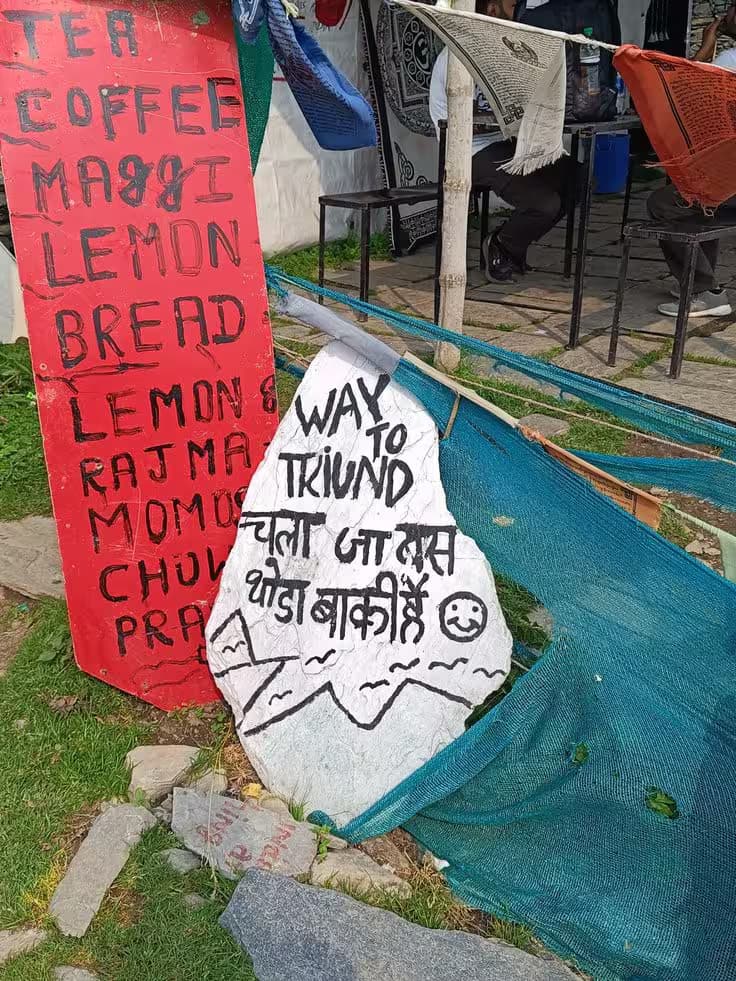 TEA
COFFEE
MAGGI
LEMON
BREAD
LEMON &
RAJMA
MOMOS
WAY
TO
TRIUND
चला जा बस
थोडा बाकी हैं